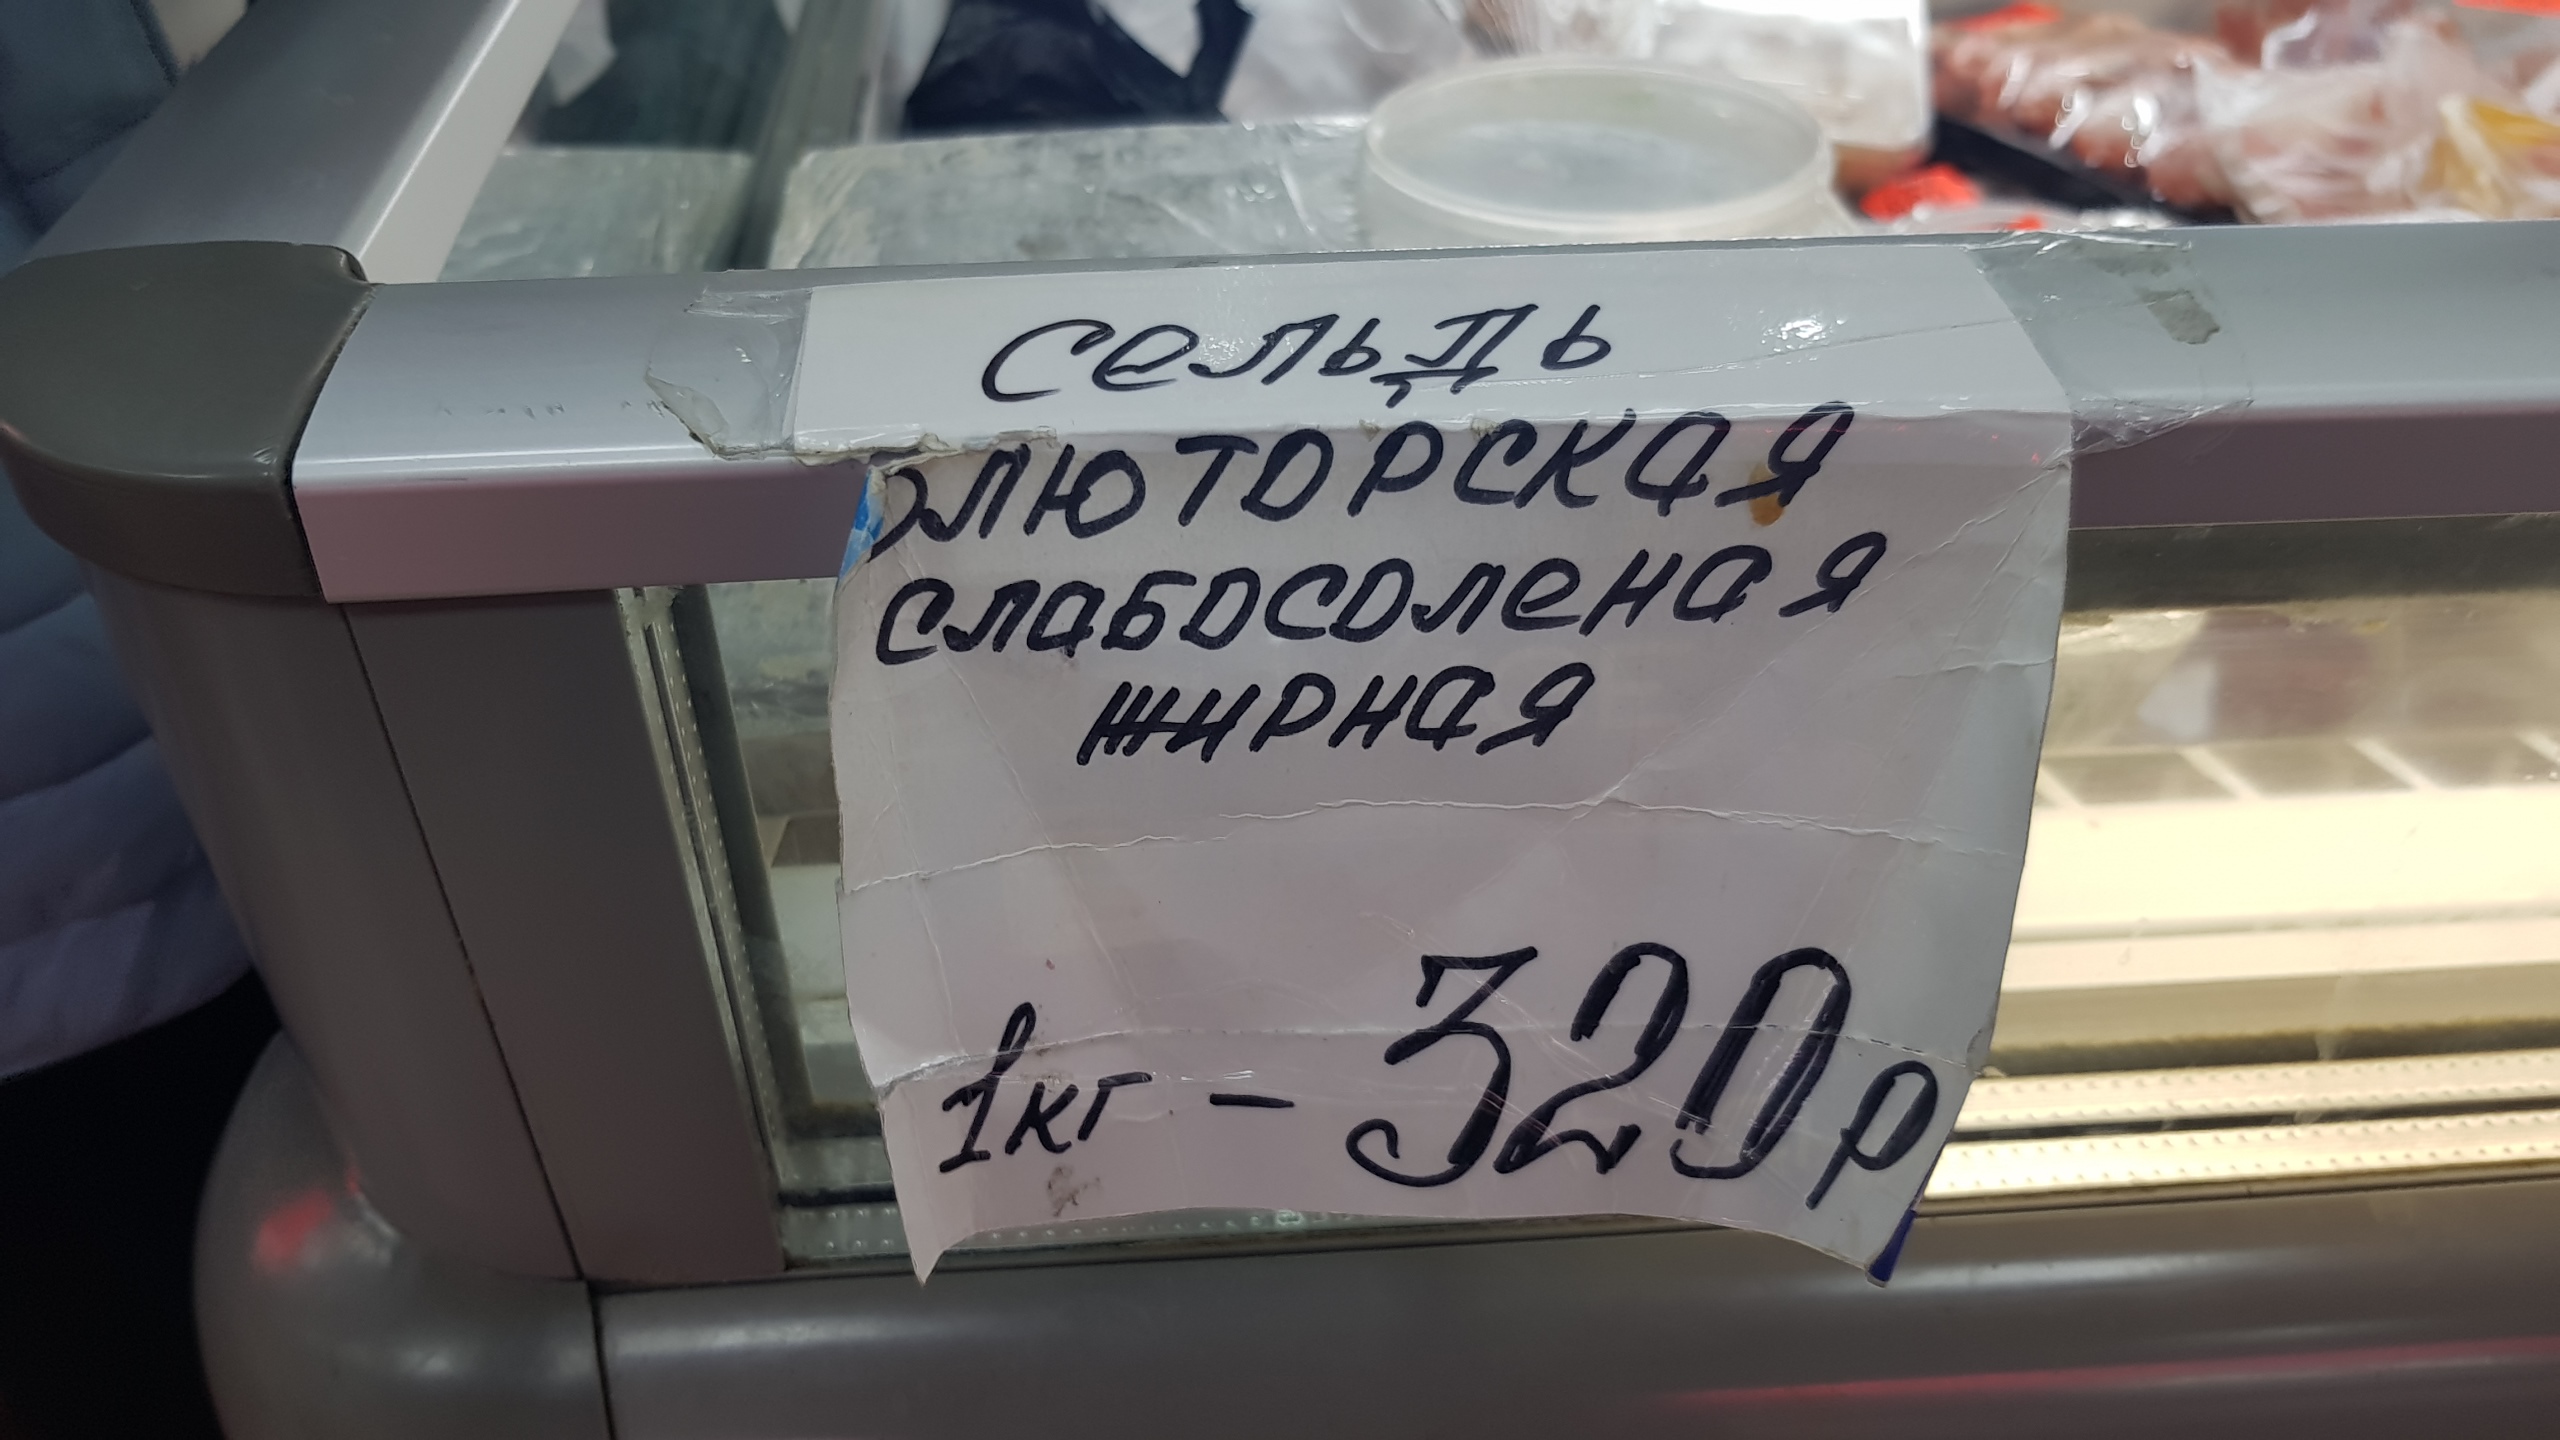 сельдь
олюторская
слабосоленая
жирная
1кг - 320р